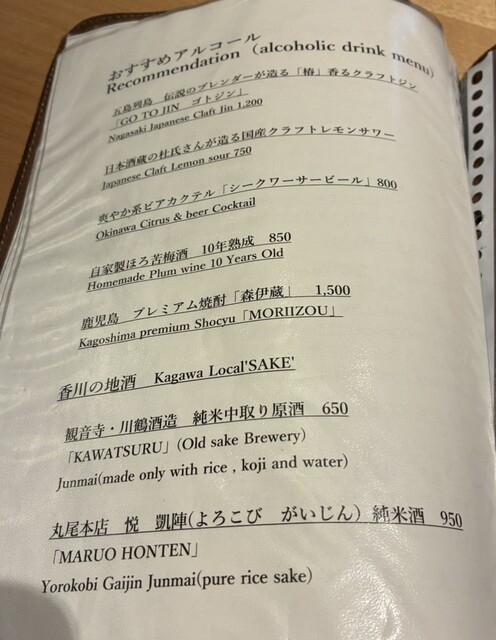 おすすめアルコール
Recommendation (alcoholic drink menu)
五島列島 伝説のブレンダーが造る「椿」香るクラフトジン
「GO TO JIN ゴトジン」
Nagasaki Japanese Claft Jin 1,200
日本酒蔵の杜氏さんが造る国産クラフトレモンサワー
Japanese Claft Lemon sour 750
爽やか系ビアカクテル「シークワーサービール」800
Okinawa Citrus & beer Cocktail
自家製ほろ苦梅酒 10年熟成 850
Homemade Plum wine 10 Years Old
鹿児島 プレミアム焼酎「森伊蔵」 1,500
Kagoshima premium Shocyu「MORIIZOU」
香川の地酒 Kagawa Local'SAKE'
観音寺・川鶴酒造 純米中取り原酒 650
「KAWATSURU」(Old sake Brewery)
Junmai(made only with rice , koji and water)
丸尾本店 悦 凱陣(よろこび がいじん) 純米酒 950
「MARUO HONTEN」
Yorokobi Gaijin Junmai(pure rice sake)